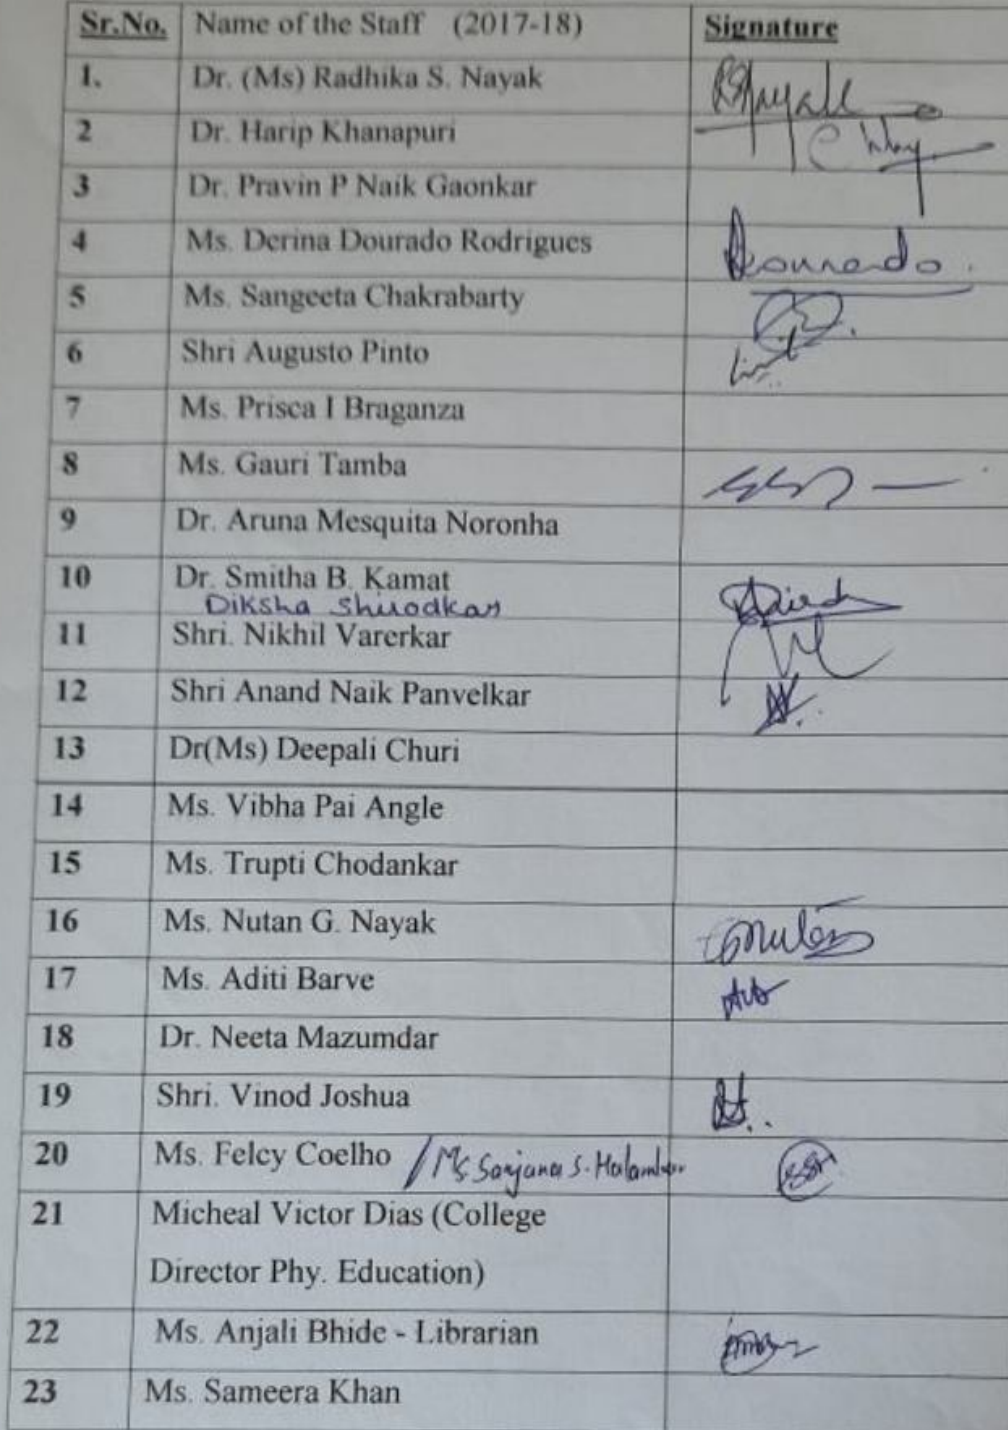 Sr.No. Name of the Staff (2017-18) Signature
1. Dr. (Ms) Radhika S. Nayak
2 Dr. Harip Khanapuri
3 Dr. Pravin P Naik Gaonkar
4 Ms. Derina Dourado Rodrigues
5 Ms. Sangeeta Chakrabarty
6 Shri Augusto Pinto
7 Ms. Prisca I Braganza
8 Ms. Gauri Tamba
9 Dr. Aruna Mesquita Noronha
10 Dr. Smitha B. Kamat
Diksha Shirodkar
11 Shri. Nikhil Varerkar
12 Shri Anand Naik Panvelkar
13 Dr(Ms) Deepali Churi
14 Ms. Vibha Pai Angle
15 Ms. Trupti Chodankar
16 Ms. Nutan G. Nayak
17 Ms. Aditi Barve
18 Dr. Neeta Mazumdar
19 Shri. Vinod Joshua
20 Ms. Felcy Coelho / Ms Sanjana S.
21 Micheal Victor Dias (College
Director Phy. Education)
22 Ms. Anjali Bhide - Librarian
23 Ms. Sameera Khan